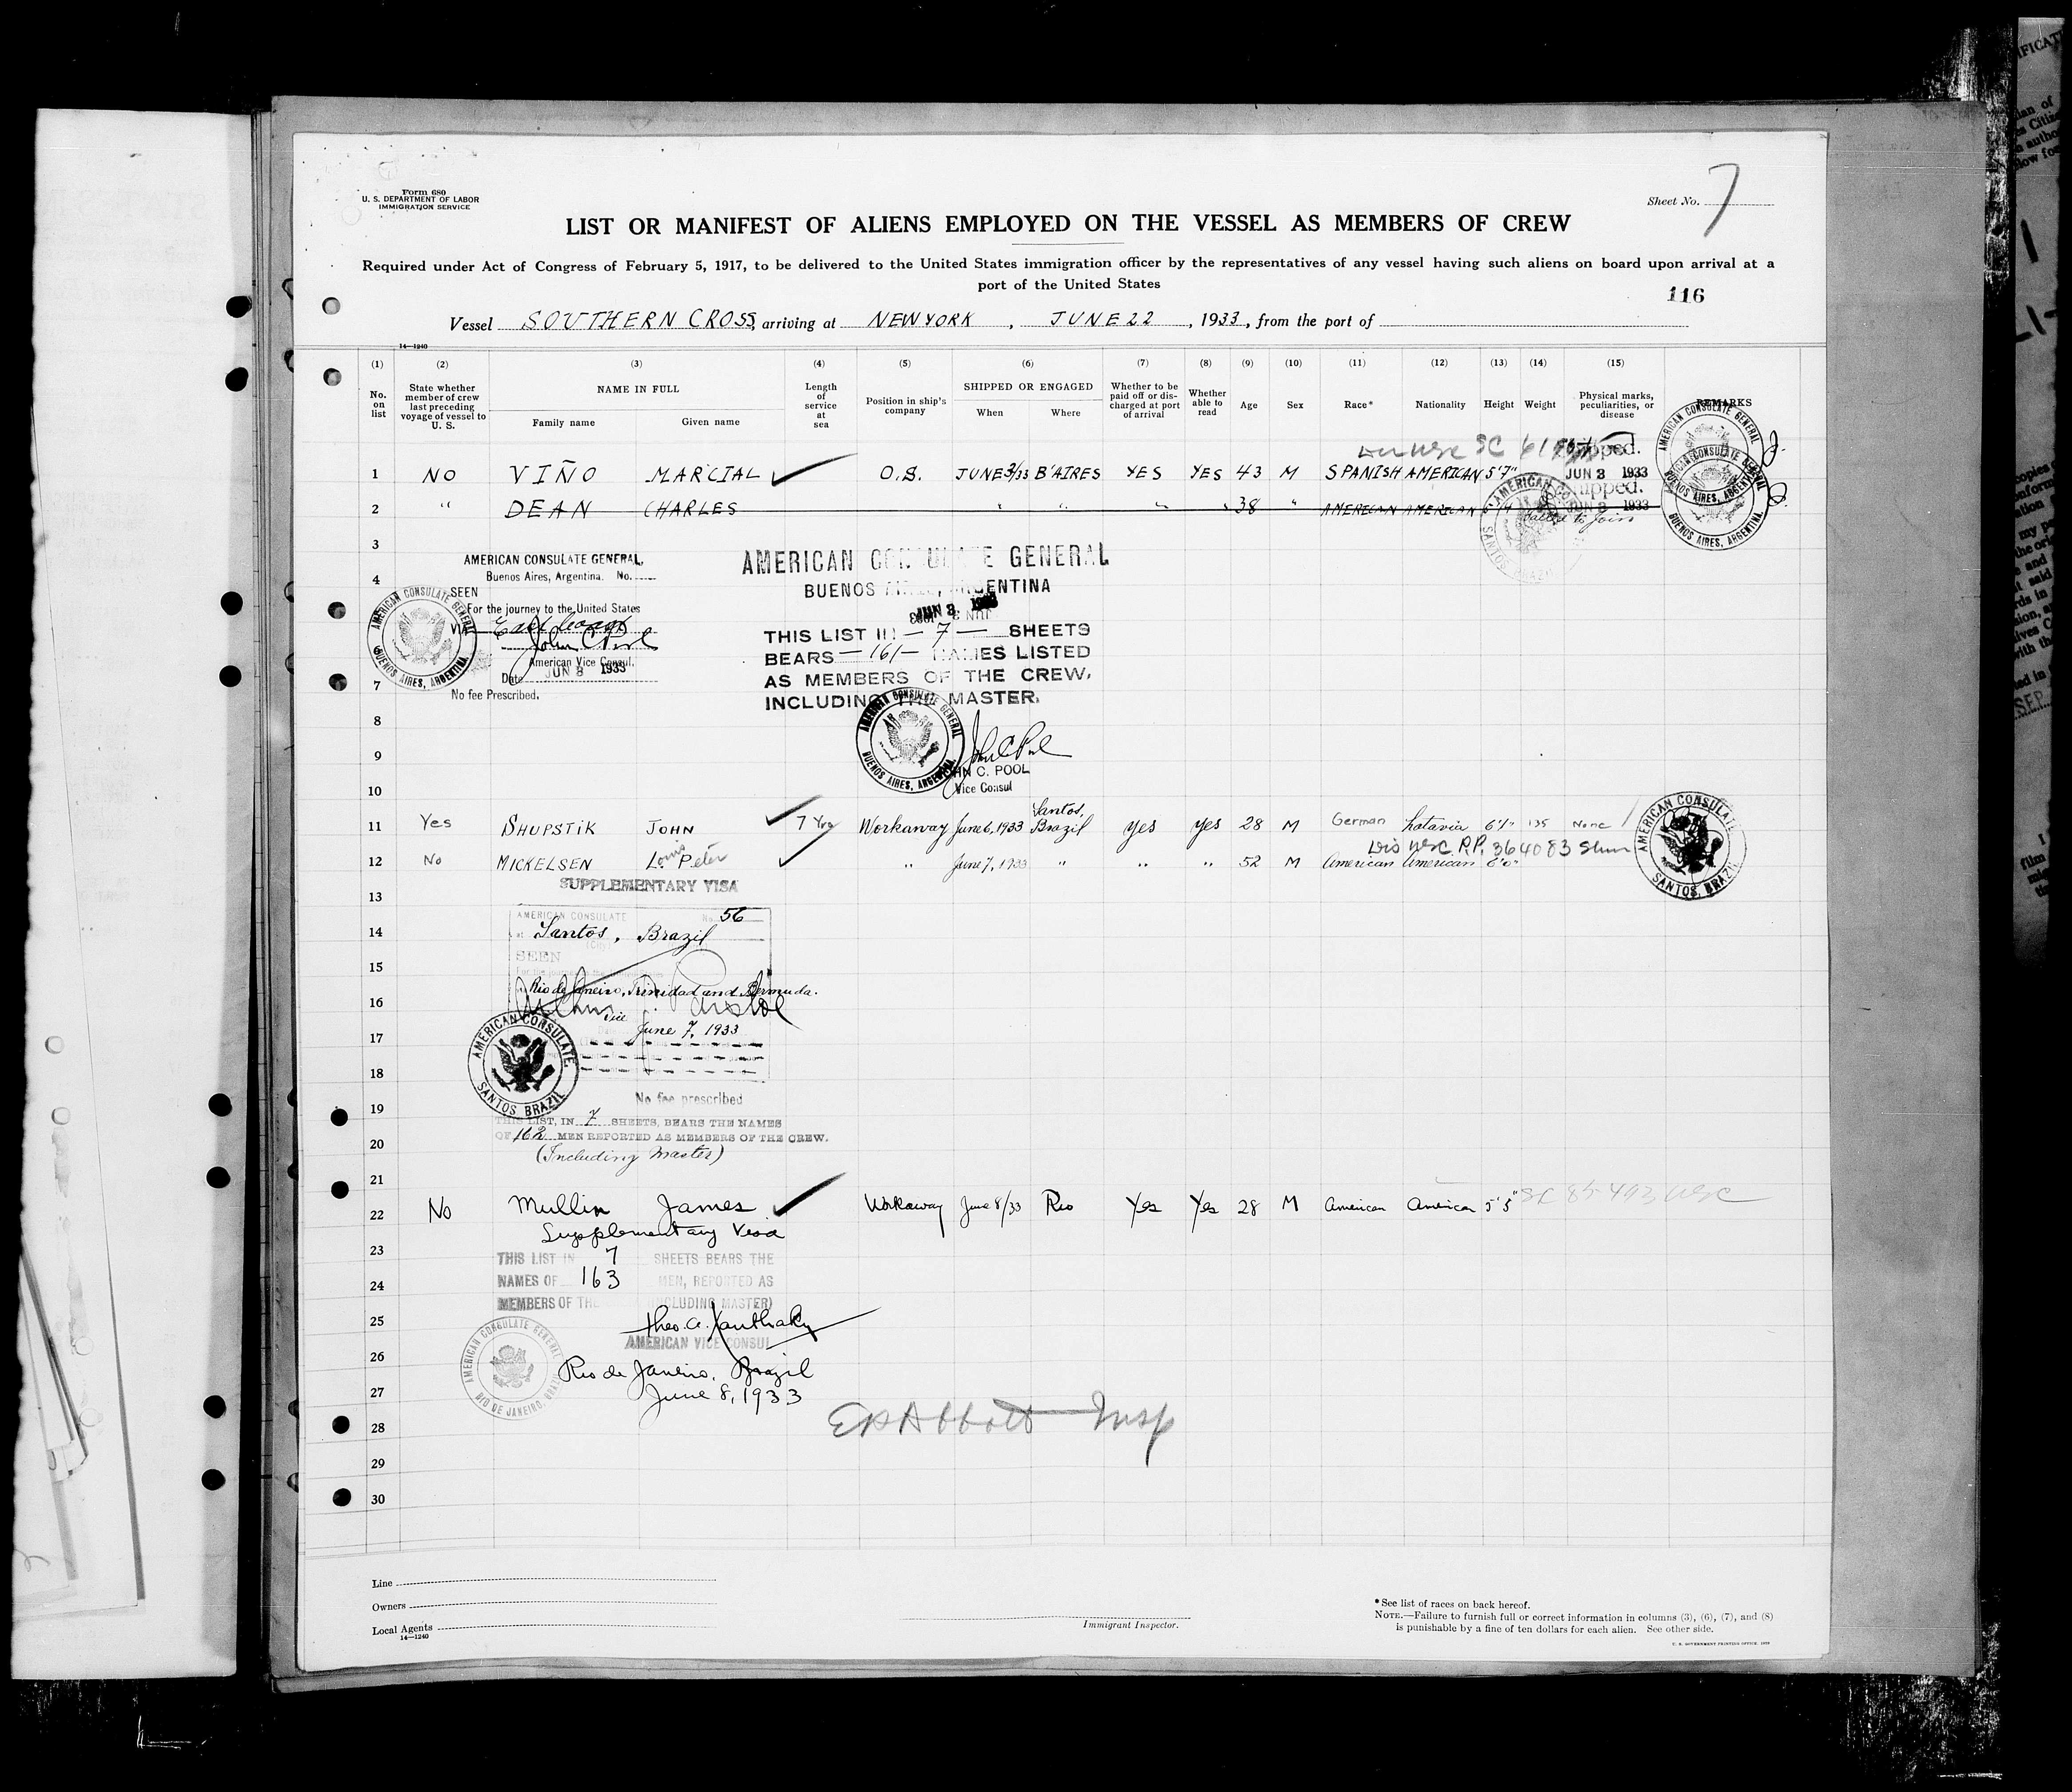 Form 680
U. S. DEPARTMENT OF LABOR
IMMIGRATION SERVICE
Sheet No. 7
LIST OR MANIFEST OF ALIENS EMPLOYED ON THE VESSEL AS MEMBERS OF CREW
Required under Act of Congress of February 5, 1917, to be delivered to the United States immigration officer by the representatives of any vessel having such aliens on board upon arrival at a
port of the United States
116
Vessel SOUTHERN CROSS, arriving at NEW YORK, JUNE 22, 1933, from the port of
14—1240
(1) (2) (3) (4) (5) (6) (7) (8) (9) (10) (11) (12) (13) (14) (15)
No. on list
State whether member of crew last preceding voyage of vessel to U. S.
NAME IN FULL
Family name
Given name
Length of service at sea
Position in ship's company
SHIPPED OR ENGAGED
When
Where
Whether to be paid off or discharged at port of arrival
Whether able to read
Age
Sex
Race*
Nationality
Height
Weight
Physical marks, peculiarities, or disease
REMARKS
1 NO VIÑO MARCIAL O.S. JUNE 3/33 B'AIRES YES YES 43 M SPANISH AMERICAN 5'7" JUN 3 1933
2 " DEAN CHARLES " " " " 38 " AMERICAN AMERICAN JUN 3 1933
Failed to Join
AMERICAN CONSULATE GENERAL BUENOS AIRES, ARGENTINA.
AMERICAN CONSULATE GENERAL BUENOS AIRES, ARGENTINA.
SANTOS BRAZIL
3
AMERICAN CONSULATE GENERAL,
Buenos Aires, Argentina. No.
4
SEEN
For the journey to the United States
VIA
John C Pool
American Vice Consul.
Date JUN 3 1933
No fee Prescribed.
AMERICAN CONSULATE GENERAL BUENOS AIRES, ARGENTINA.
AMERICAN CONSULATE GENERAL
BUENOS AIRES, ARGENTINA
JUN 3 1933
THIS LIST IN — 7 — SHEETS
BEARS — 161 — NAMES LISTED
AS MEMBERS OF THE CREW,
INCLUDING THE MASTER.
AMERICAN CONSULATE GENERAL BUENOS AIRES, ARGENTINA.
John C Pool
HN C. POOL
Vice Consul
7
8
9
10
11 Yes SHUPSTIK JOHN 7 Yrs Workaway June 6, 1933 Santos, Brazil yes yes 28 M German Latavia 6'1" 135 None
12 No MICKELSEN Louis Peter " June 7, 1933 " " " 52 M American American 6'0"
364083
AMERICAN CONSULATE SANTOS, BRAZIL
SUPPLEMENTARY VISA
13
AMERICAN CONSULATE No. 56
14
at Santos, Brazil
SEEN
15
Rio de Janeiro, Trinidad and Bermuda.
16
Vice
17
June 7, 1933
18
AMERICAN CONSULATE SANTOS BRAZIL
No fee prescribed
19
THIS LIST, IN 7 SHEETS, BEARS THE NAMES
OF 162 MEN REPORTED AS MEMBERS OF THE CREW.
20
(Including Master)
21
22 No Mullin James Workaway June 8/33 Rio Yes Yes 28 M American American 5'5"
Supplementary Visa
23
THIS LIST IN 7 SHEETS BEARS THE
24
NAMES OF 163 MEN, REPORTED AS
MEMBERS OF THE (INCLUDING MASTER)
25
Theo. A. Xanthaky
AMERICAN VICE CONSUL
26
AMERICAN CONSULATE GENERAL RIO DE JANEIRO, BRAZIL
Rio de Janeiro, Brazil
27
June 8, 1933
28
Abbott — Insp
29
30
Line
Owners
Local Agents
14—1240
Immigrant Inspector.
*See list of races on back hereof.
NOTE.—Failure to furnish full or correct information in columns (3), (6), (7), and (8)
is punishable by a fine of ten dollars for each alien. See other side.